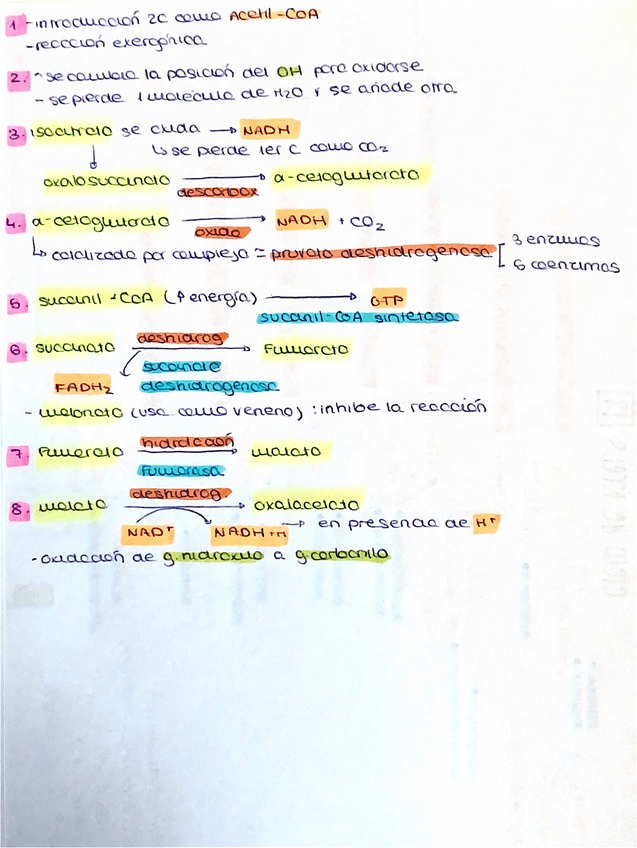 1 -introducción 2C como Acetil-CoA
-reacción exergónica
2. - se cambia la posición del OH para oxidarse
- se pierde 1 molécula de H2O y se añade otra
3. isocitrato se oxida → NADH
↳ se pierde 1er C como CO2
↓
oxalosuccinato → α-cetoglutarato
descarbox
4. α-cetoglutarato → NADH + CO2
oxida
↳ catalizada por complejo = piruvato deshidrogenasa [ 3 enzimas
5 coenzimas
5. succinil-CoA (↑ energía) → GTP
succinil-CoA sintetasa
6. succinato deshidrog → Fumarato
succinato
FADH2 deshidrogenasa
- malonato (usa como veneno) : inhibe la reacción
7. Fumarato hidratación → malato
Fumarasa
8. malato deshidrog. → oxalacetato
NAD+ NADH+H → en presencia de H+
-oxidación de g.hidroxilo a g carbonilo